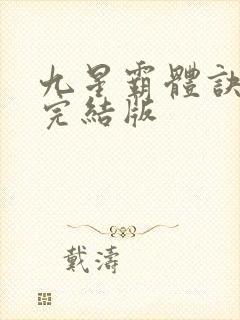 九星霸體訣
完結版
戴濤